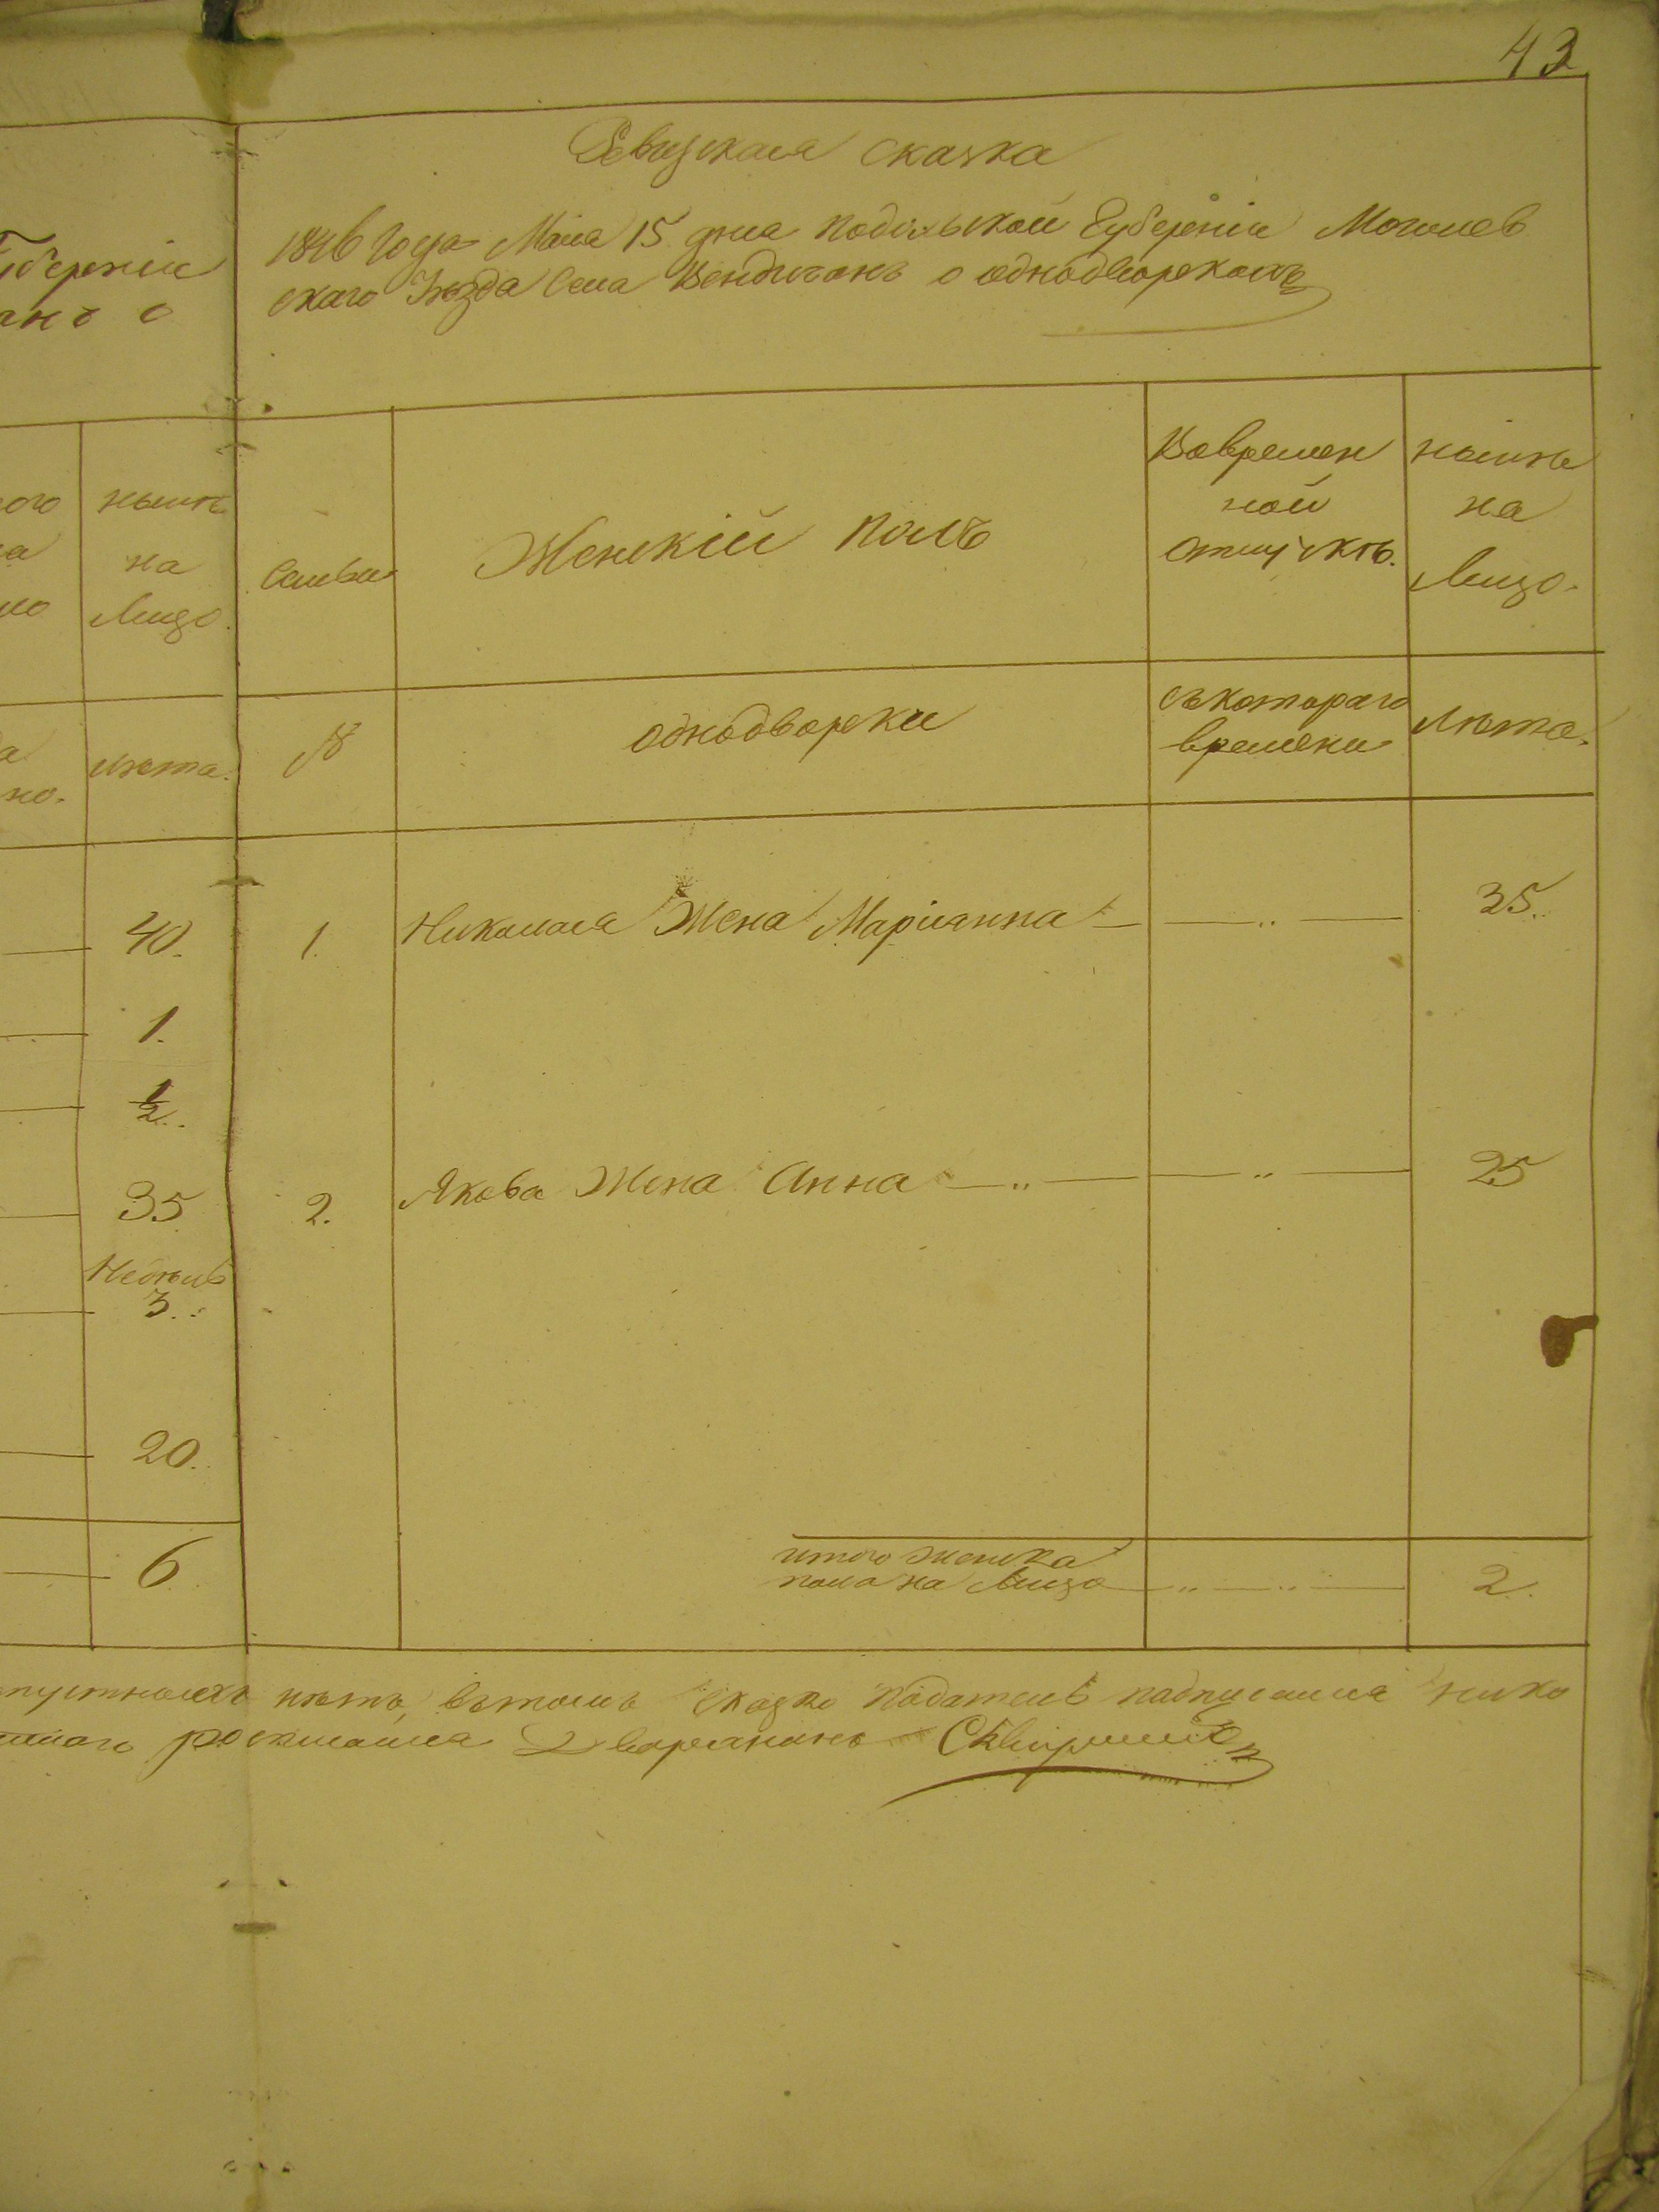 43
Ревизская сказка
1846 Года Маия 15 дня Подольской Губернии Могилев
скаго Уѣзда Села Вендичанъ о однодворкахъ
Губерніи
анъ о
ого
нынѣ
на
Лицо.
лѣта.
но.
Семьи
Женскій полъ
Вовремен
ной
отлучкѣ.
нынѣ
на
Лицо.
№
однодворки
съкотораго
времени
Лѣта.
40.
1.
Николая Жена Маріянна — „ —
35.
1.
1/2.
35
2.
Якова Жена Анна — „ — — „ —
25
Недѣль
3.
20.
6
итого женска
пола на Лицо — „ — „ —
2.
пустыхъ нѣтъ, вътомъ сказко Податель
Дворянинъ